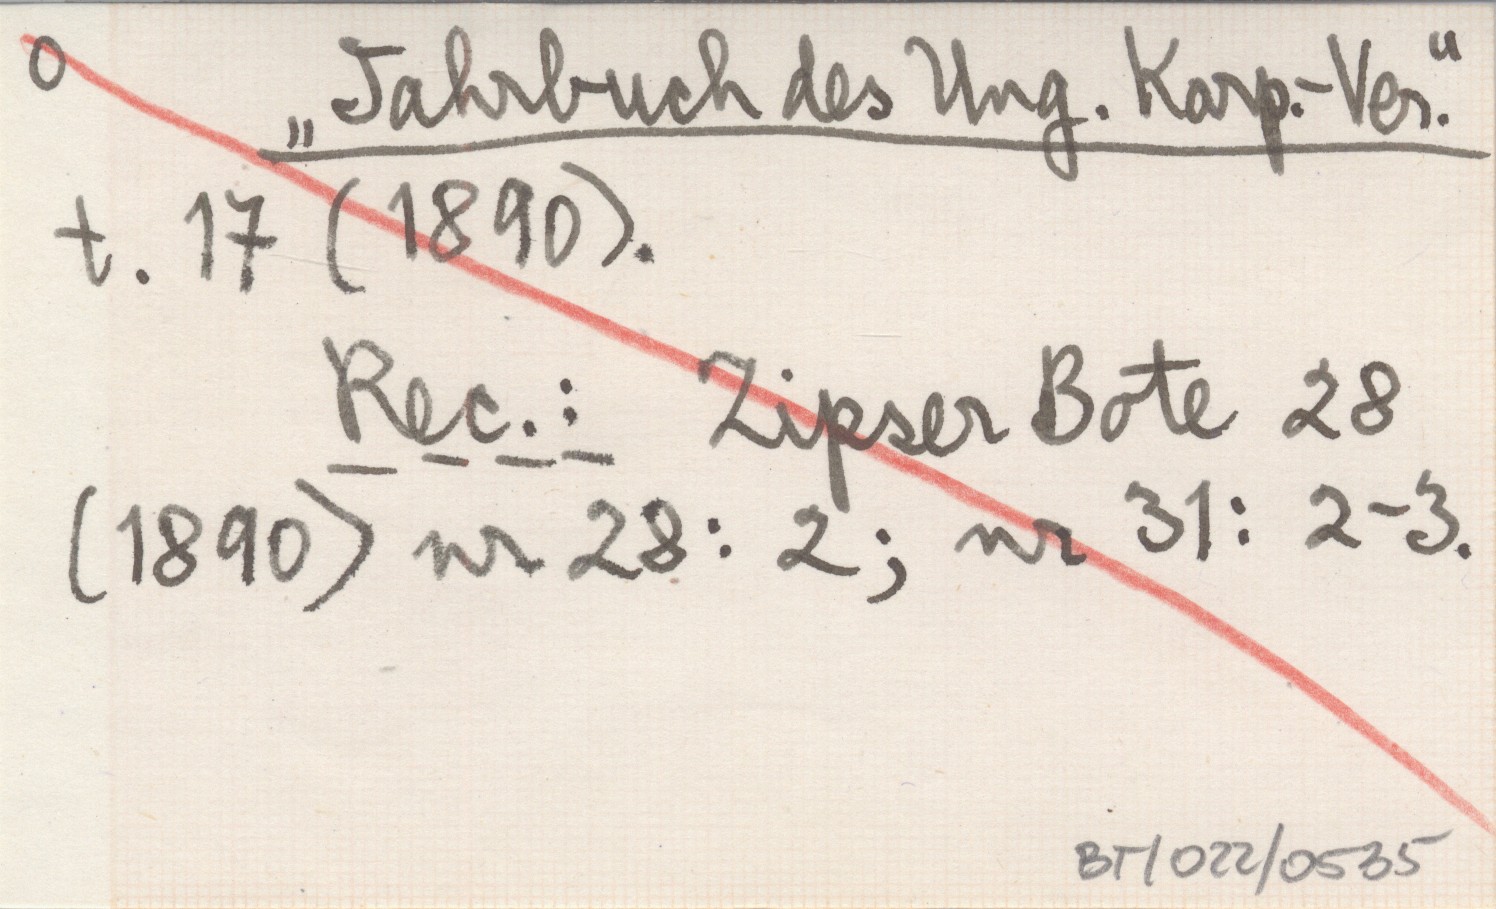 0 „Jahrbuch des Ung. Karp.-Ver.“
t. 17 (1890).
Rec.: Zipser Bote 28
(1890) nr 28: 2; nr 31: 2-3.
BT/022/0535